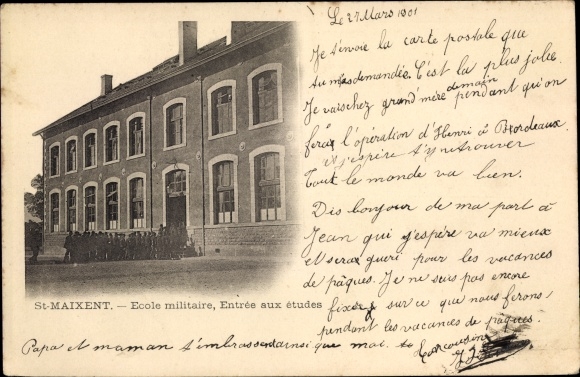 Le 27 Mars 1901
Je t'envoie la carte postale que
tu m'as demandée. C'est la plus jolie.
Je vais chez grand'mère demain pendant qu'on
fera l'opération d'Henri à Bordeaux.
et j'espère t'y retrouver
Tout le monde va bien.
Dis bonjour de ma part à
Jean qui j'espère va mieux
et sera guéri pour les vacances
de pâques. Je ne suis pas encore
fixée sur ce que nous ferons
pendant les vacances de pâques.
St-MAIXENT. — Ecole militaire, Entrée aux études
Papa et maman t'embrassent ainsi que moi. Ton cousin